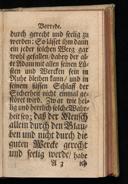 Vorrede.
durch gerecht und seelig zu
werden: So lässet ihm dann
ein jeder solchen Weeg gar
wohl gefallen/ dabey der al-
te Adam mit allen seinen Lü-
sten und Wercken fein in
Ruhe bleiben kan/ und in
seinem süssen Schlaff der
Sicherheit nicht einmal ge-
stöhret wird. Zwar wie selig
und herrlich solche Wahr-
heit sey; daß der Mensch
allein durch den Glau-
ben und nicht durch die
guten Wercke gerecht
und seelig werde/ habe
A 3 ich